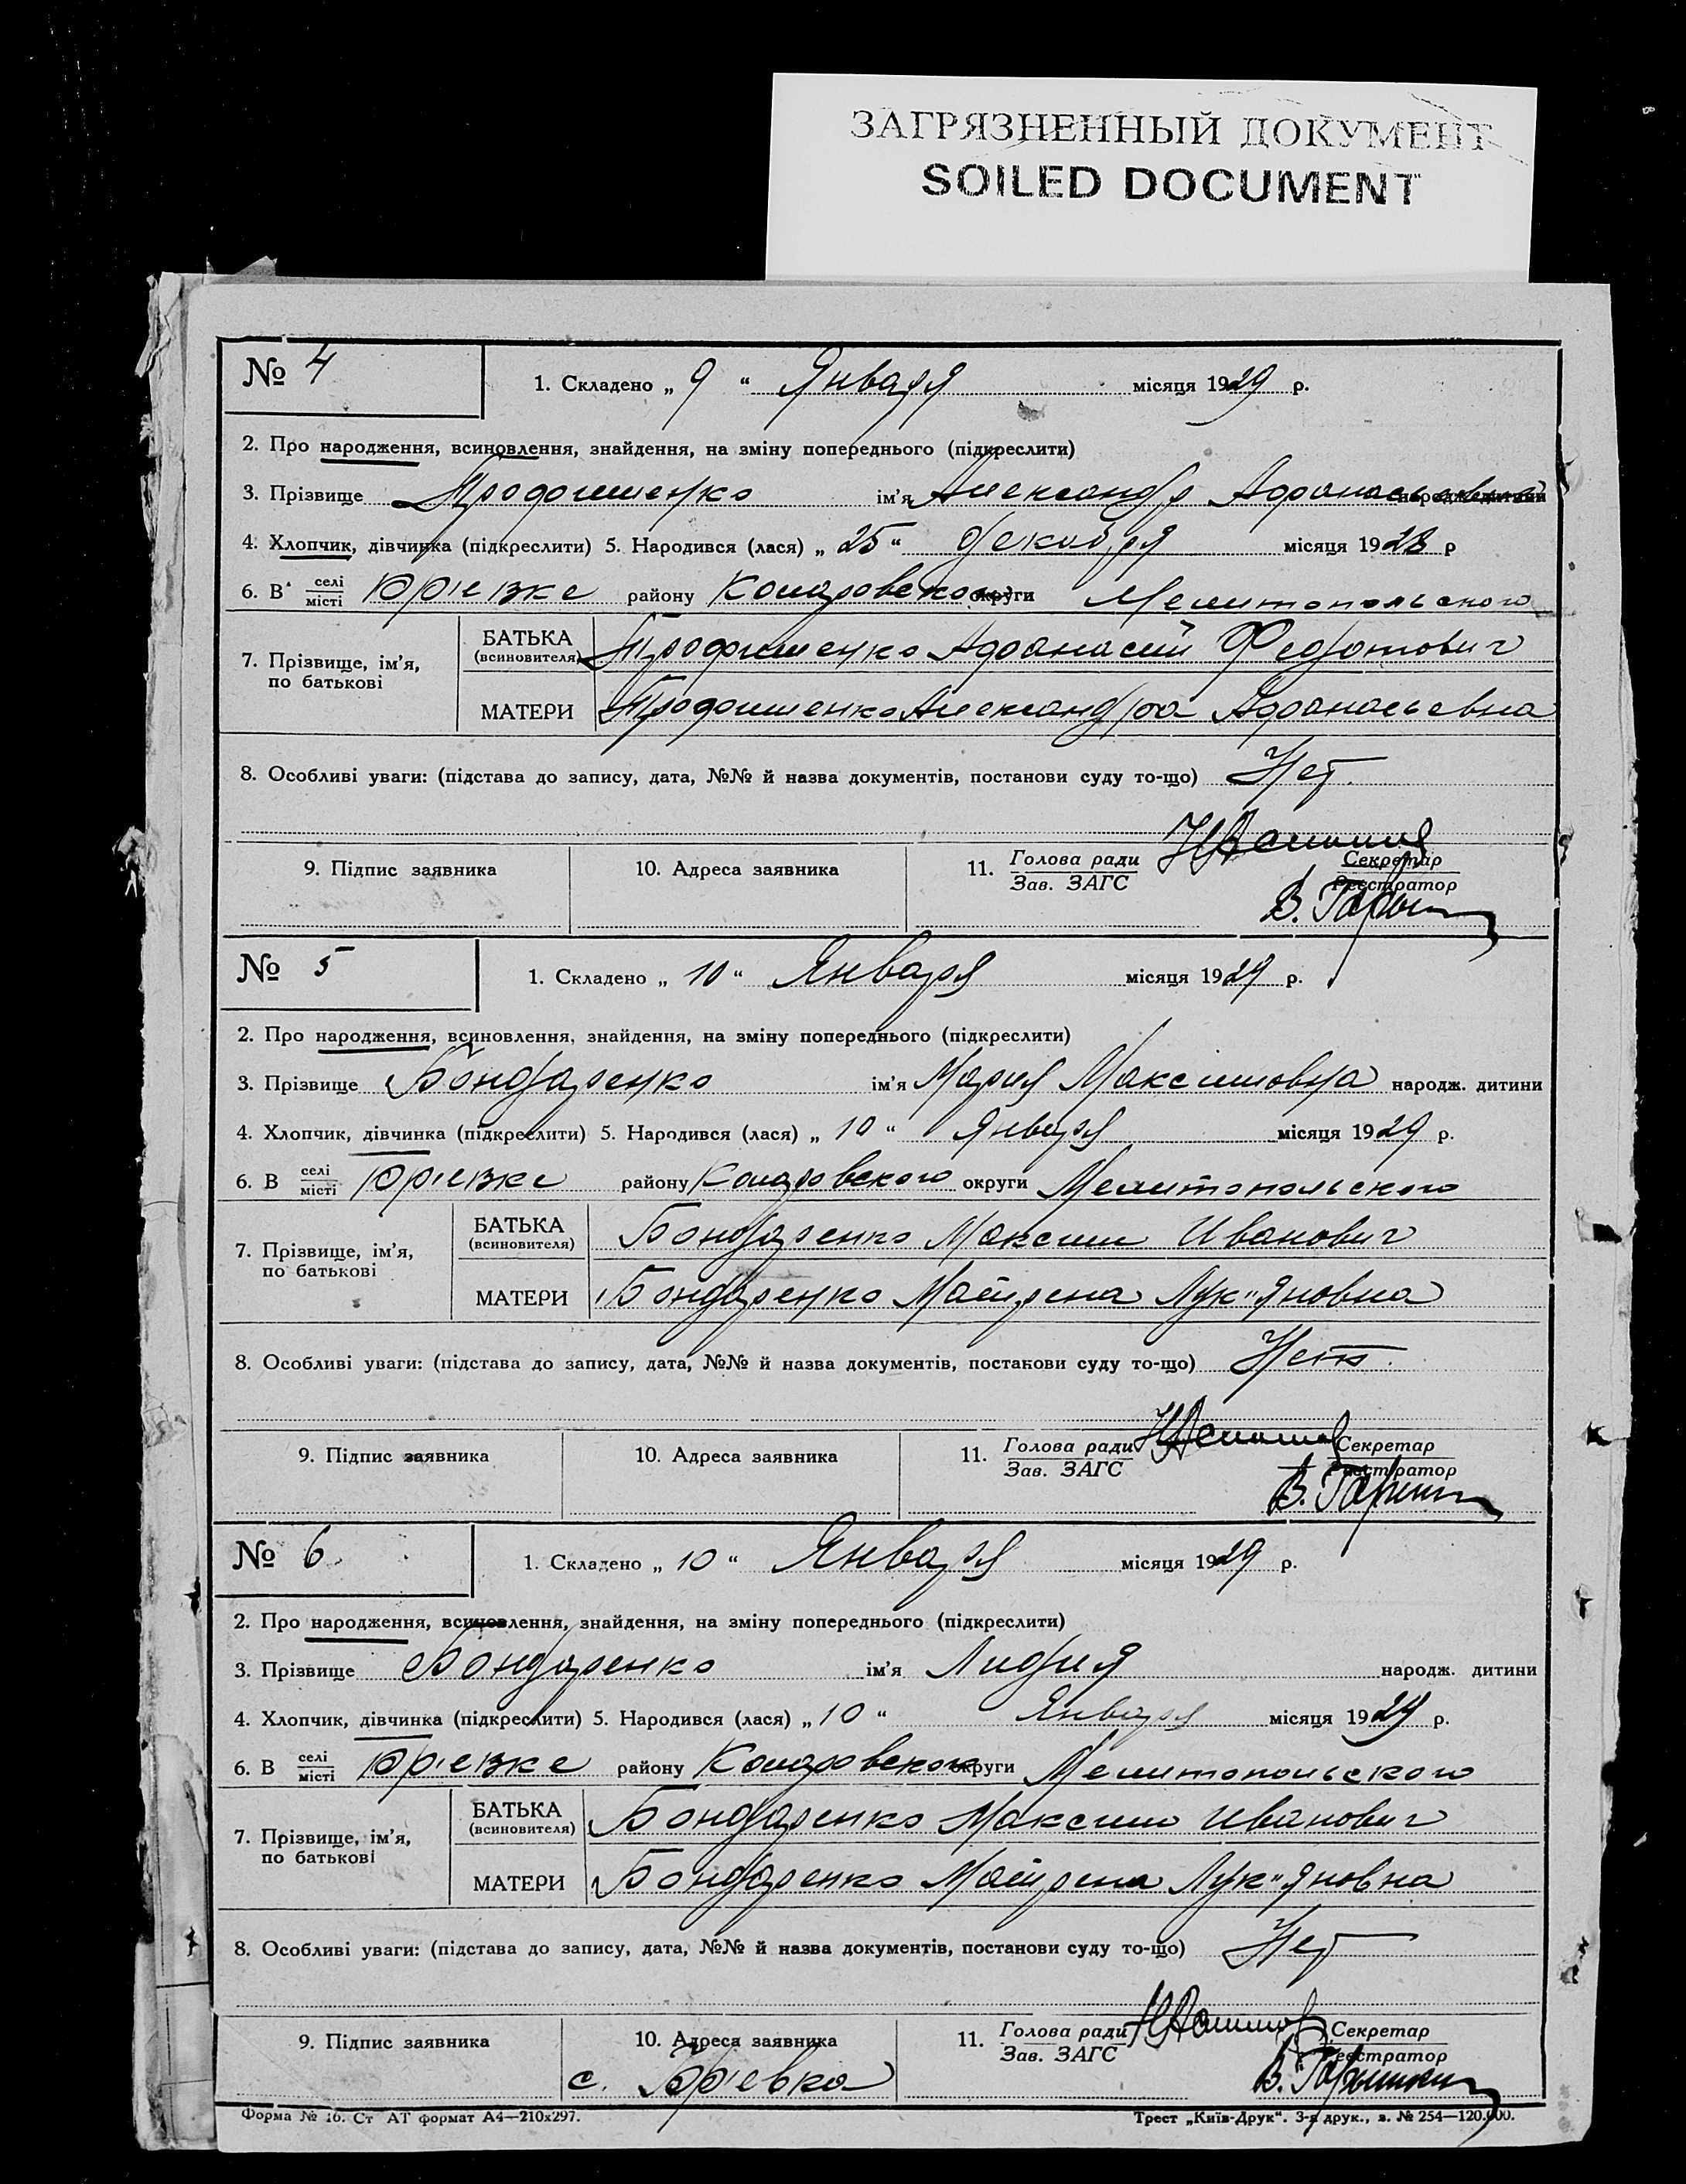 ЗАГРЯЗНЕННЫЙ ДОКУМЕНТ
SOILED DOCUMENT
№ 4
1. Складено „ 9 “ Января місяця 1929 р.
2. Про народження, всиновлення, знайдення, на зміну попереднього (підкреслити)
3. Прізвище ім'я Александр Афанасьевич
4. Хлопчик, дівчинка (підкреслити) 5. Народився (лася) „ 25 “ декабря місяця 1928 р
6. В селі місті Юр'евке району округи Мелитопольского
7. Прізвище, ім'я, по батькові
БАТЬКА (всиновителя) Афанасий Федотович
МАТЕРИ Александра Афанасьевна
8. Особливі уваги: (підстава до запису, дата, №№ й назва документів, постанови суду то-що) Нет.
9. Підпис заявника 10. Адреса заявника 11. Голова ради Зав. ЗАГС Секретар Реєстратор
№ 5
1. Складено „ 10 “ Января місяця 1929 р.
2. Про народження, всиновлення, знайдення, на зміну попереднього (підкреслити)
3. Прізвище Бондаренко ім'я Мария Максимовна народж. дитини
4. Хлопчик, дівчинка (підкреслити) 5. Народився (лася) „ 10 “ Января місяця 1929 р.
6. В селі місті Юр'евке району округи Мелитопольского
7. Прізвище, ім'я, по батькові
БАТЬКА (всиновителя) Бондаренко Максим Иванович
МАТЕРИ Бондаренко Матрена Лук"яновна
8. Особливі уваги: (підстава до запису, дата, №№ й назва документів, постакови суду то-що) Нет.
9. Підпис заявника 10. Адреса заявника 11. Голова ради Зав. ЗАГС Секретар Реєстратор
№ 6
1. Складено „ 10 “ Января місяця 1929 р.
2. Про народження, всиновлення, знайдення, на зміну попереднього (підкреслити)
3. Прізвище Бондаренко ім'я Лидия народж. дитини
4. Хлопчик, дівчинка (підкреслити) 5. Народився (лася) „ 10 “ Января місяця 1929 р.
6. В селі місті Юр'евке району округи Мелитопольского
7. Прізвище, ім'я, по батькові
БАТЬКА (всиновителя) Бондаренко Максим Иванович
МАТЕРИ Бондаренко Матрена Лук"яновна
8. Особливі уваги: (підстава до запису, дата, №№ й назва документів, постанови суду то-що) Нет
9. Підпис заявника 10. Адреса заявника 11. Голова ради Зав. ЗАГС Секретар Реєстратор
с. Юр'евка
Форма № 16. Ст АТ формат А4—210х297. Трест „Київ-Друк“. 3-я друк., з. № 254—120.000.